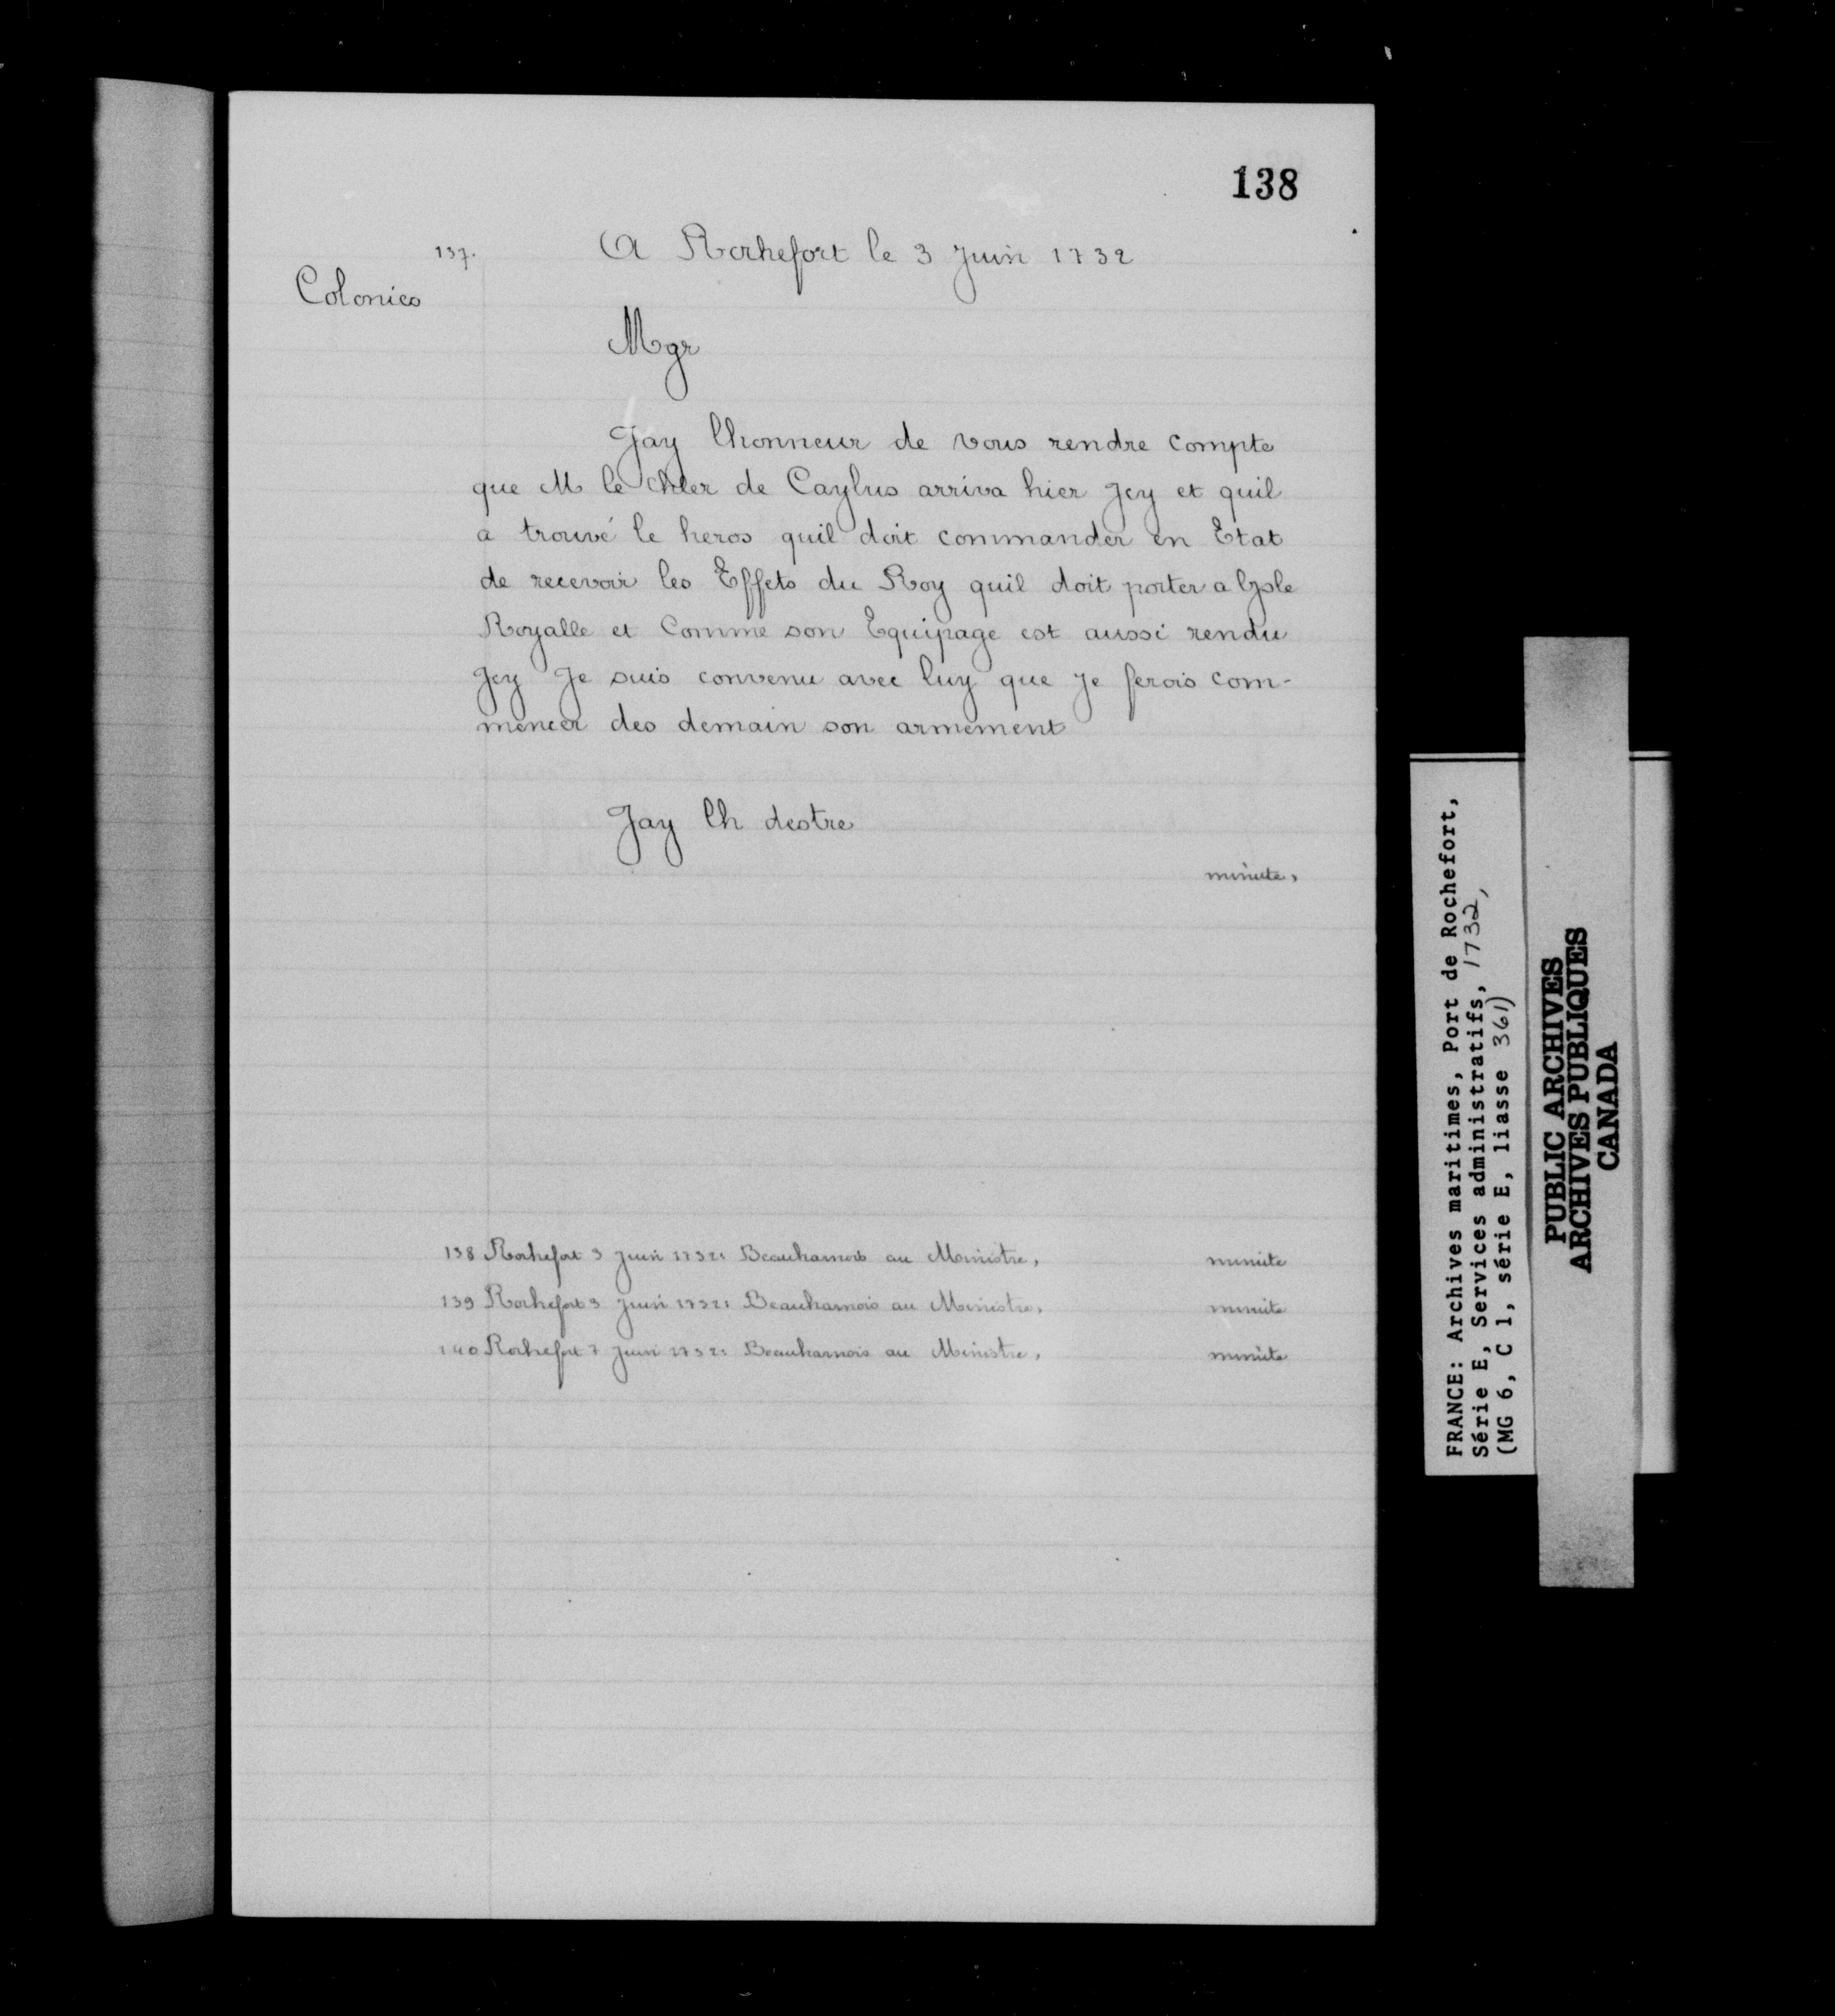 138
137.
A Rochefort le 3 Juin 1732
Colonies
Mgr
Jay lhonneur de vous rendre compte
que M le chler de Caylus arriva hier Jcy et quil
a trouvé le heros quil doit commander en Etat
de recevoir les Effets du Roy quil doit porter a lJsle
Royalle et Comme son Equipage est aussi rendu
Jcy Je suis convenu avec luy que je ferois com-
mencer des demain son armement
Jay lh destre
minute,
138 Rochefort 3 Juin 1732: Beauharnois au Ministre, minute
139 Rochefort 3 Juin 1732: Beauharnois au Ministre, minute
140 Rochefort 7 Juin 1732: Beauharnois au Ministre, minute
FRANCE: Archives maritimes, Port de Rochefort,
Série E, Services administratifs, 1732,
(MG 6, C 1, série E, liasse 361)
PUBLIC ARCHIVES
ARCHIVES PUBLIQUES
CANADA